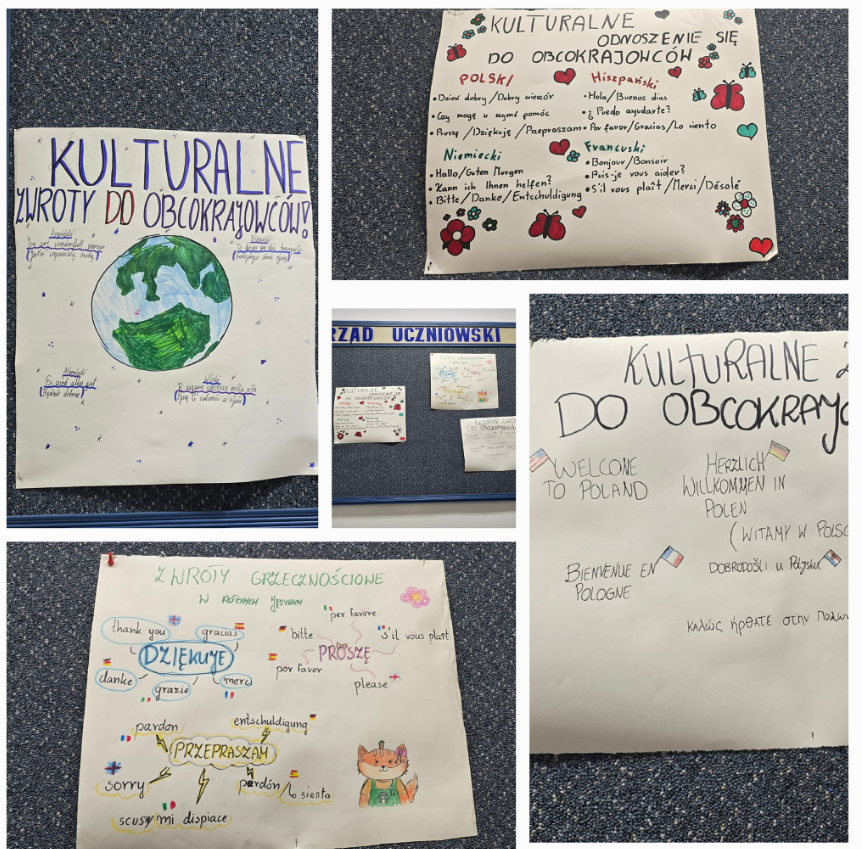 KULTURALNE
ZWROTY DO OBCOKRAJOWCÓW!
KULTURALNE
ODNOSZENIE SIĘ
DO OBCOKRAJOWCÓW
POLSKI
• Dzień dobry/Dobry wieczór
• Czy mogę w czymś pomóc
• Proszę/Dziękuję/Przepraszam
Hiszpański
• Hola/Buenos dias
• ¿Puedo ayudarte?
• Por favor/Gracias/Lo siento
Niemiecki
• Hallo/Guten Morgen
• Kann ich Ihnen helfen?
• Bitte/Danke/Entschuldigung
Francuski
• Bonjour/Bonsoir
• Puis-je vous aider?
• S'il vous plaît/Merci/Désolé
RZĄD UCZNIOWSKI
KULTURALNE
DO OBCOKRAJO
WELCOME
TO POLAND
HERZLICH
WILLKOMMEN IN
POLEN
(WITAMY W POLSC
BIENVENUE EN
POLOGNE
DOBRODOŠLI u Poljsku
ΚΑΛώς ήρθΑΤΕ στην Πολων
ZWROTY GRZECZNOŚCIOWE
W RÓŻNYCH JĘZYKACH
thank you
gracias
DZIĘKUJĘ
danke
grazie
merci
per favore
bitte
s'il vous plast
PROSZĘ
por favor
please
pardon
entschuldigung
PRZEPRASZAM
sorry
perdón/lo siento
scusy mi dispiace